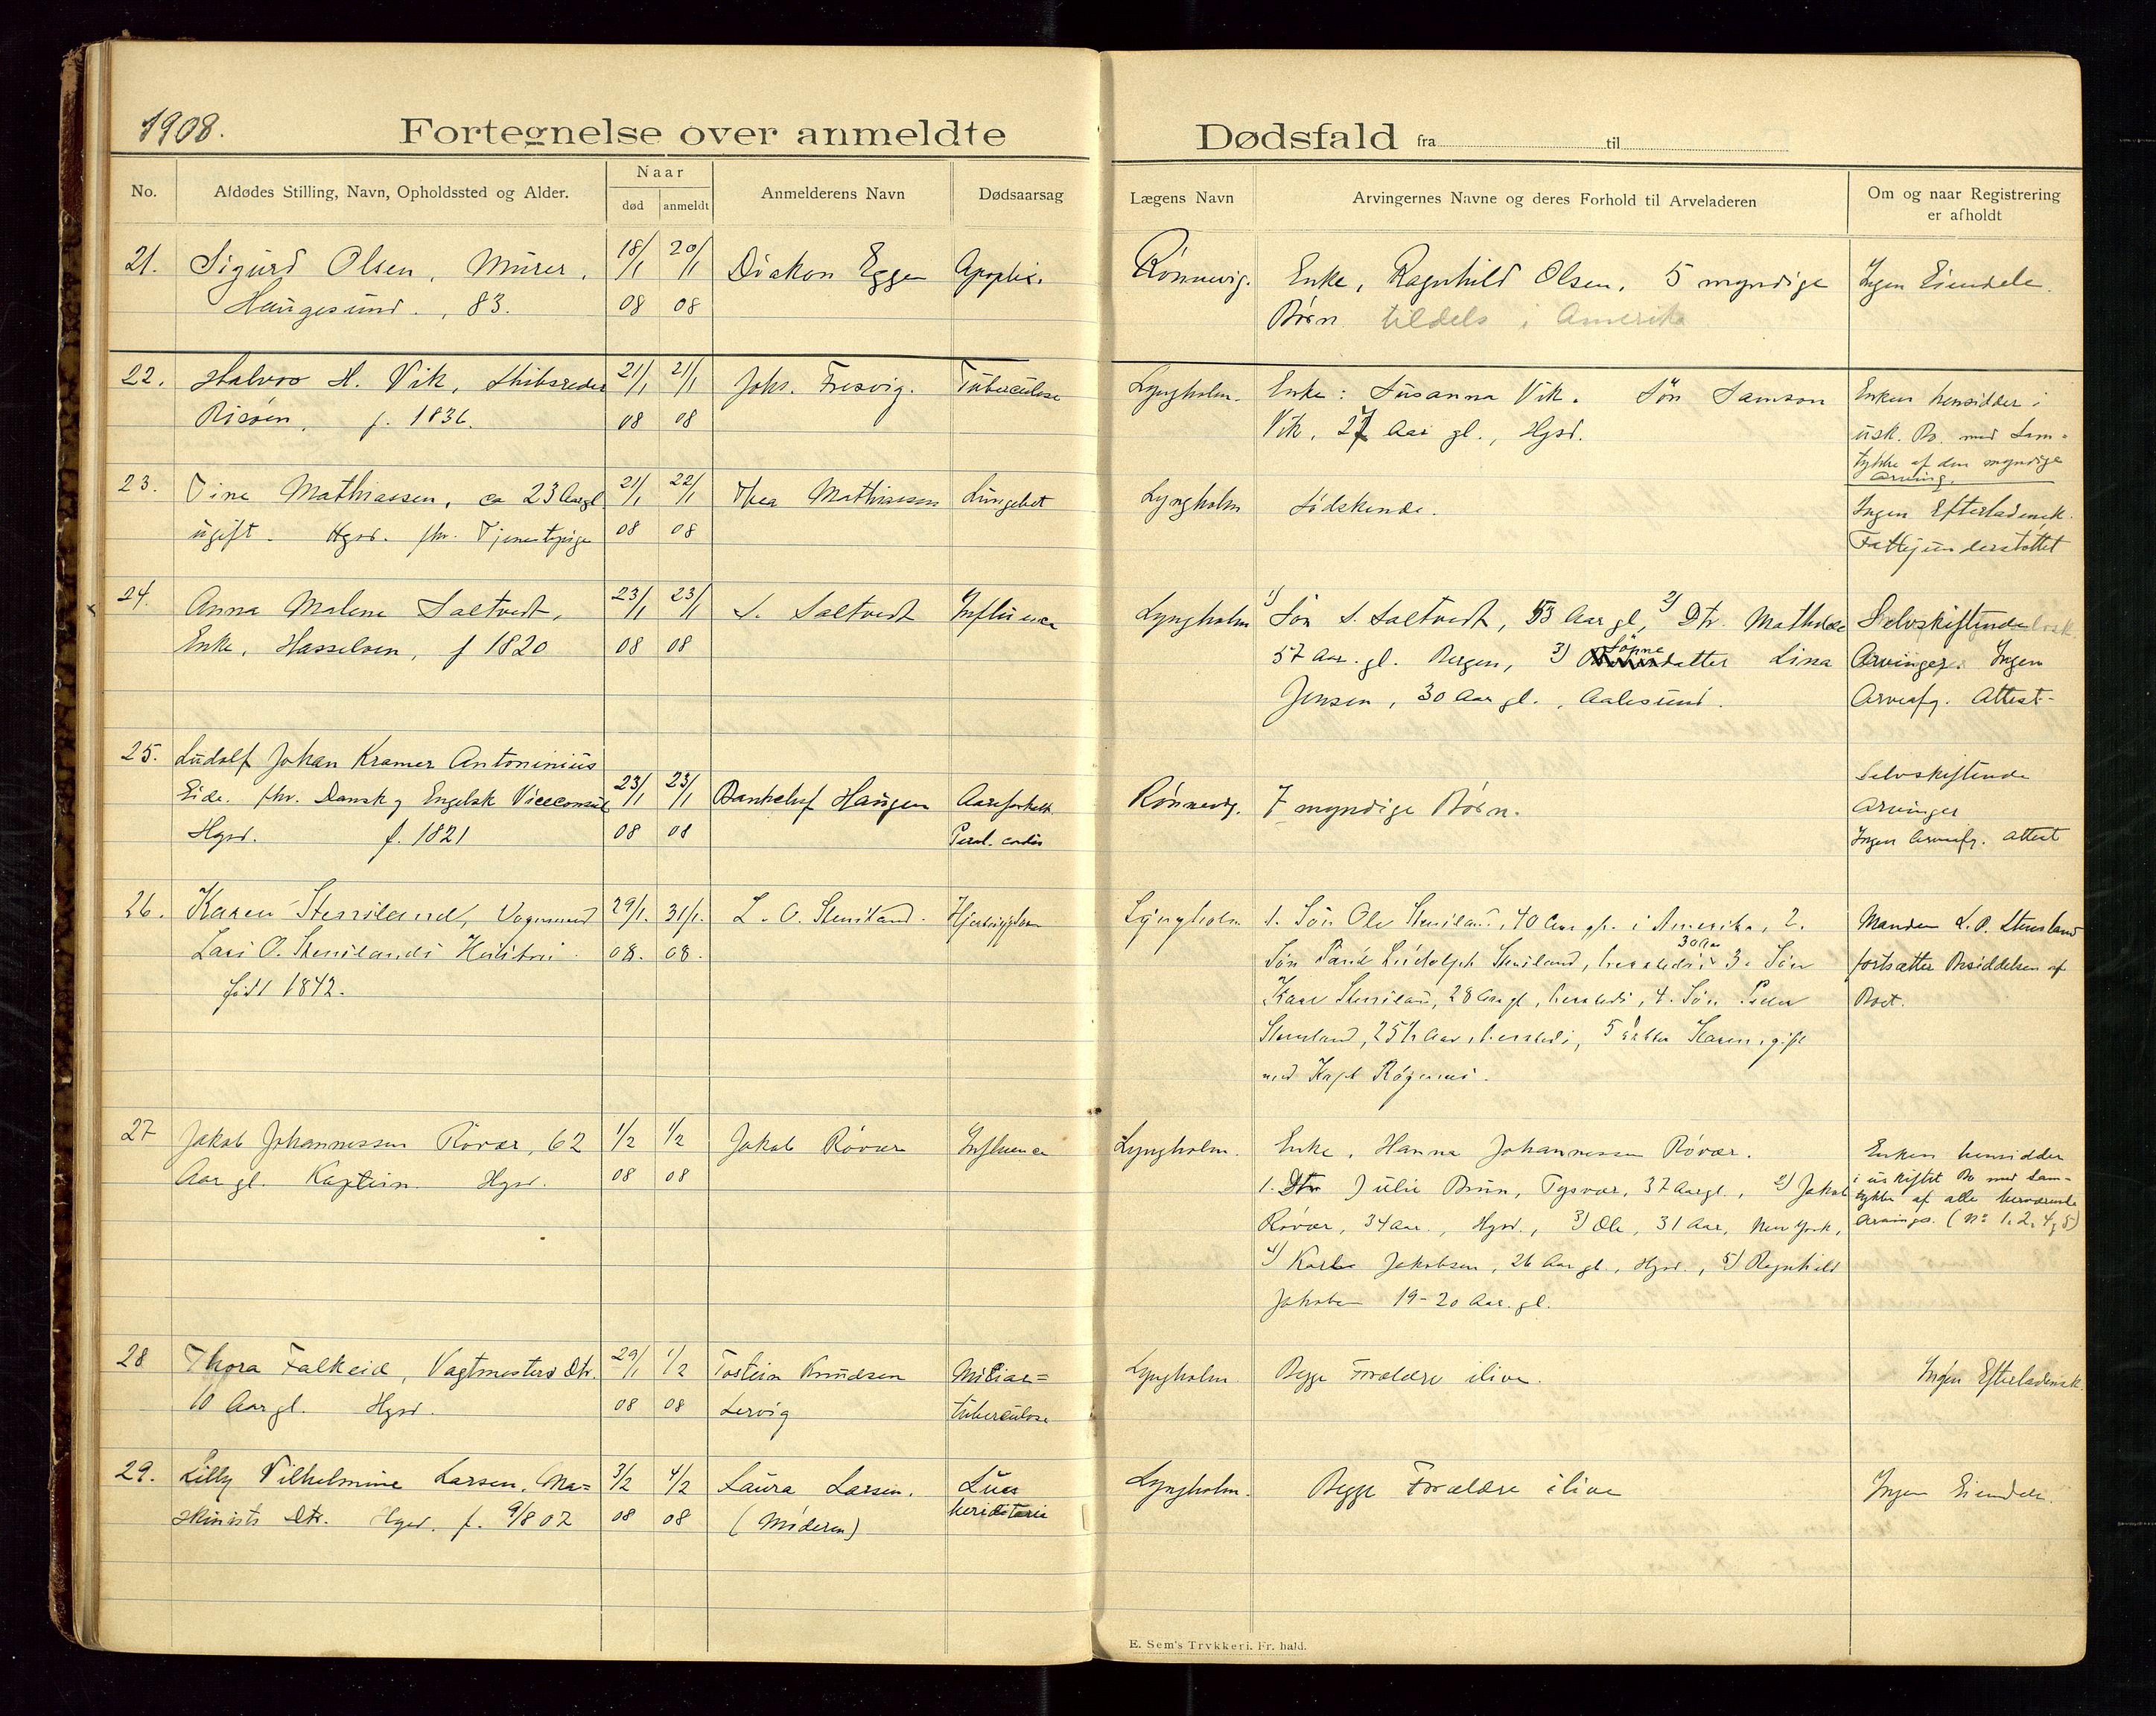 1908.
Fortegnelse over anmeldte Dødsfald fra til
No.
Afdødes Stilling, Navn, Opholdssted og Alder.
Naar
død
anmeldt
Anmelderens Navn
Dødsaarsag
Lægens Navn
Arvingernes Navne og deres Forhold til Arveladeren
Om og naar Registrering
er afholdt
21. Sigurd Olsen, Murer, 18/1 20/1 Diakon Eggen Rønnevig. Enke, Ragnhild Olsen, 5 myndige Ingen Eiendele.
Haugesund, 83. 08 08 Børn tildels i Amerika
22. Halvor H. Vik, Skibsreder 21/1 21/1 Johs. Fresvig. Tuberculose Lyngholm. Enke: Susanna Vik. Søn Samson Enken hensidder i
Risøen, f. 1836. 08 08 Vik, 27 Aar gl., Hgsd. usk. Bo. med Sam-
tykke af den myndige
Arving.
23. Tine Mathiassen, ca 23 Aar gl. 21/1 22/1 Thea Mathiassen Lyngholm Sødskende. Ingen Efterladensk.
ugift. Hgsd. fhv. Tjenestepige 08 08 Fattigunderstøttet
24. Anna Malene Saltvedt, 23/1 23/1 S. Saltvedt Influenca Lyngholm 1) Søn S. Saltvedt, 53 Aar gl, 2) Dtr. Mathilde Selvskiftende
Enke, Hasseloen, f 1820 08 08 57 Aar. gl. Bergen, 3) Sønnedatter Lina Arvinger. Ingen
Jensen, 30 Aar gl., Aalesund. Arveafg. Attest-
25. Ludolf Johan Kramer Antoninius Selvskiftende
Eide. fhv. Dansk og Engelsk Viceconsul 23/1 23/1 Bankchef Haugen Aareforkalk. Rønnevig. 7 myndige Børn. Arvinger
Hgsd. f. 1821 08 08 cordis Ingen Arveafg. Attest
26. Karen Stensland, Vognmand 29/1. 31/1. L. O. Stensland. Lyngholm 1. Søn Ole Stensland, 40 Aar gl. i Amerika, 2. Manden L. O. Stensland
Lars O. Stenslands Hustru. 08. 08. 30 Aar
Søn Ludolph Stensland, hersteds, 3. Søn fortsætter Besiddelsen af
født 1842. Stensland, 28 Aar gl, hersteds, 4. Søn Peder Boet.
Stensland, 25 1/2 Aar, hersteds, 5 Karen, gift
med
27 Jakob Johannessen Røvær, 62 1/2 1/2 Jakob Røvær Influenca Lyngholm. Enke, Hanna Johannessen Røvær. Enken hensidder
Aar gl. Kaptein Hgsd. 08 08 1. Dtr Julie Brun, Tysvær, 37 Aar gl., 2) Jakob i uskiftet Bo med Sam-
tykke af alle herværende
Røvær, 34 Aar., Hgsd., 3) Ole, 31 Aar, New York, Arvinger. (No 1, 2, 4, 5)
4) Jakobsen, 26 Aar gl., Hgsd., 5) Ragnhild
Jakobsen 19-20 Aar. gl.
28 Thora Falkeid, Vagtmesters Dtr. 29/1 1/2 Tostein Knudsen Miliar= Lyngholm. Begge Forældre ilive. Ingen Efterladensk.
10 Aar gl. Hgsd. 08 08 Lervig tuberculose
29. Lilly Vilhelmine Larsen, Ma= 3/2 4/2 Laura Larsen. Lues Lyngholm. Begge Forældre ilive Ingen Eiendele.
skinists Dtr. Hgsd. f. 9/8 07 08 08 (Moderen)
E. Sem's Trykkeri. Fr.hald.